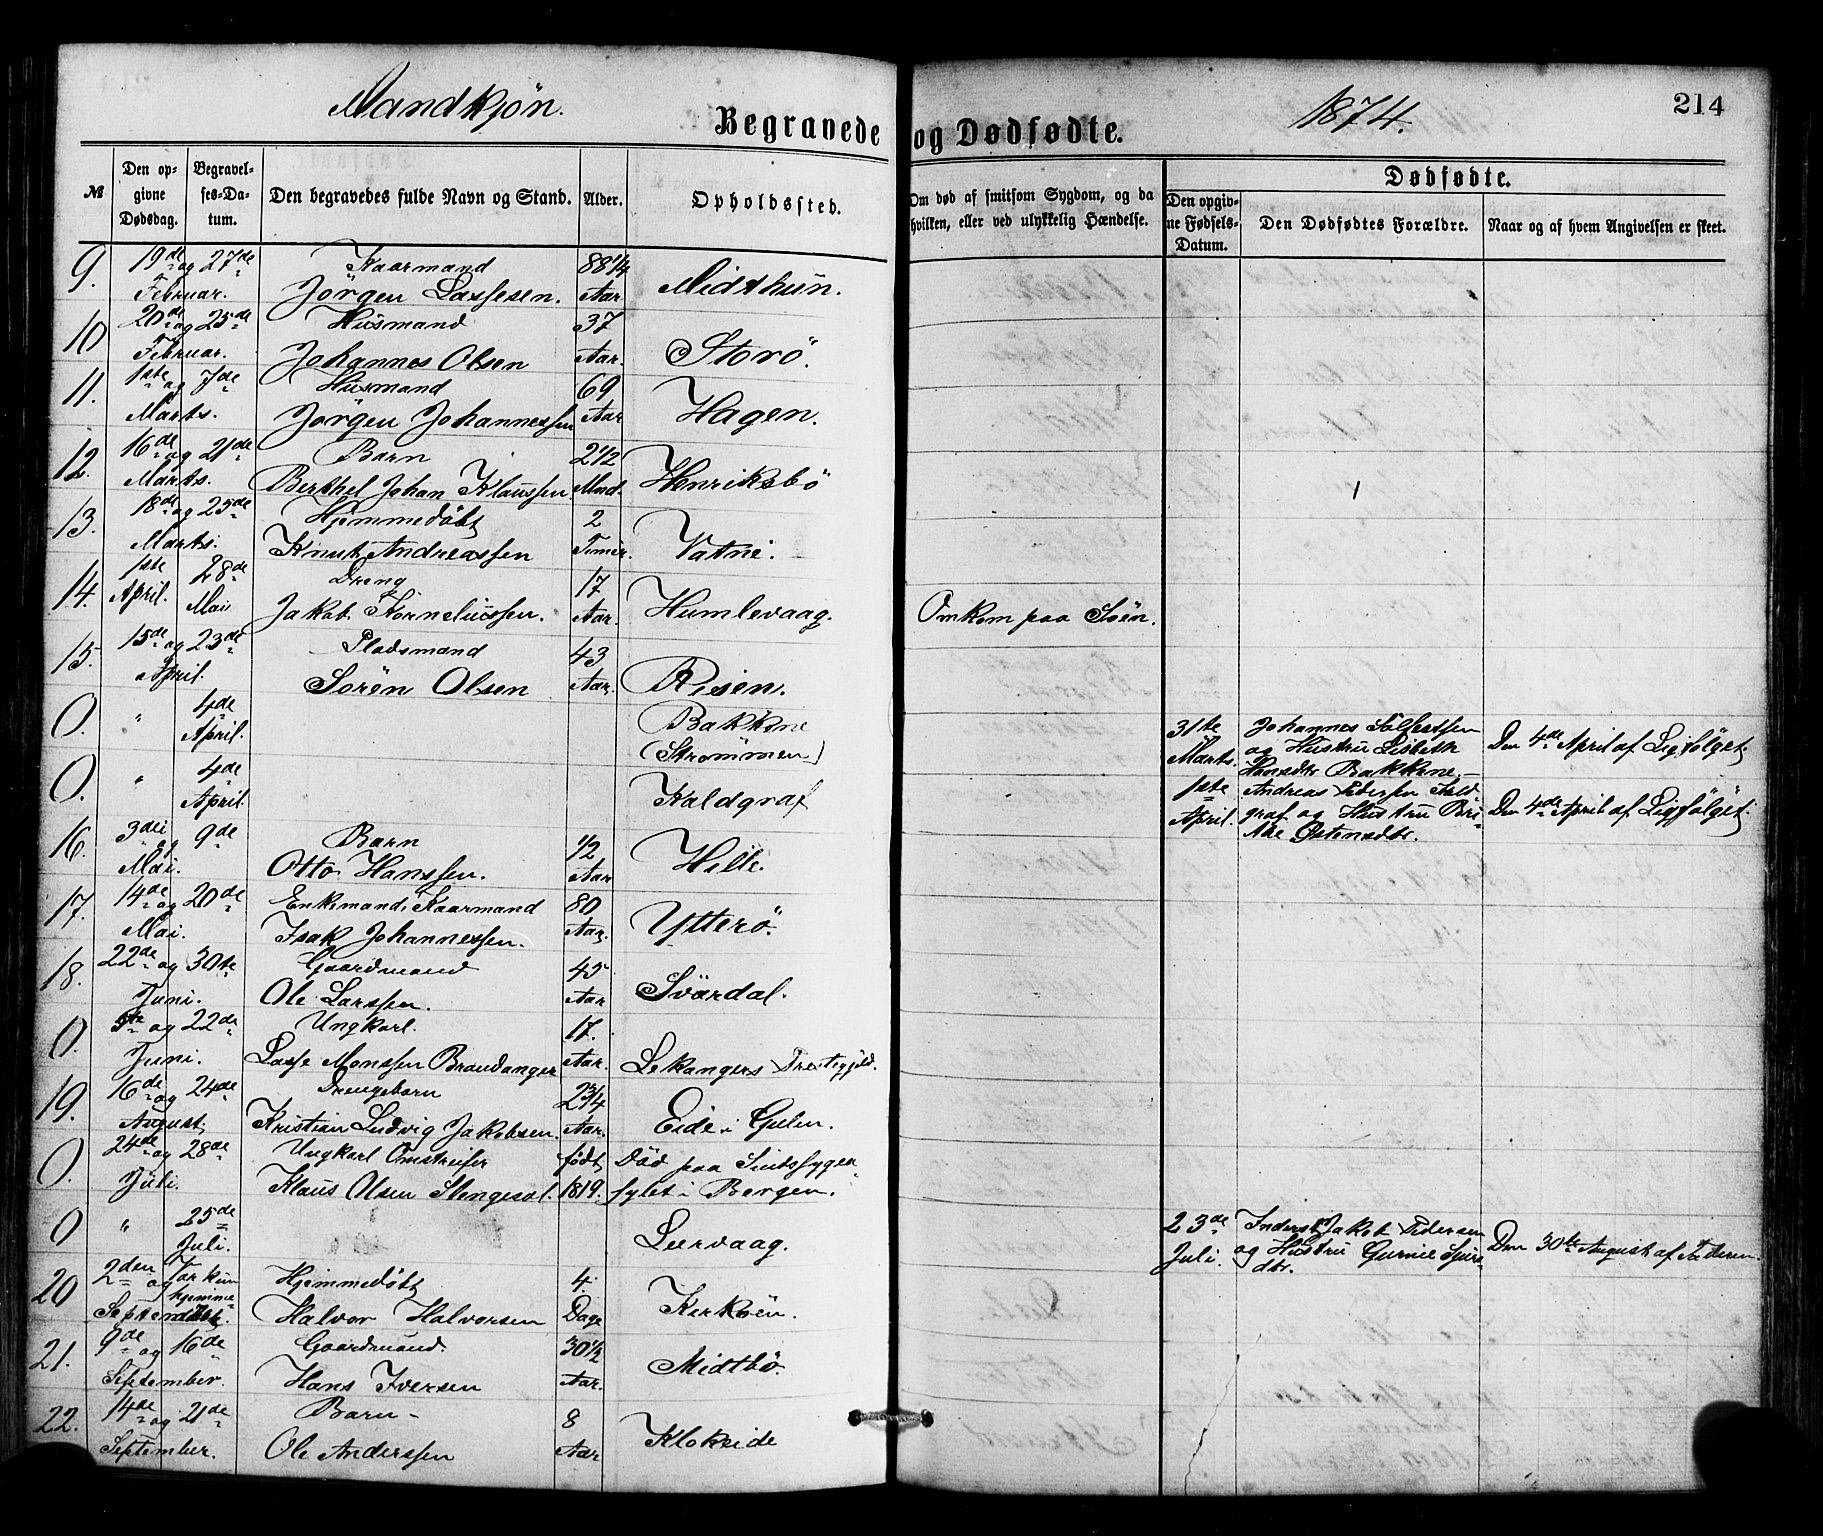 Mandkjøn.
Begravede og Dødfødte.
1874.
214
№
Den opgivne Dødsdag.
Begravelses-Datum.
Den begravedes fulde Navn og Stand.
Alder.
Opholdssted.
Om død af smitsom Sygdom, og da hvilken, eller ved ulykkelig Hændelse.
Dødfødte.
Den opgivne Fødsels-Datum.
Den Dødfødtes Forældre.
Naar og af hvem Angivelsen er skeet.
9. 19de og 27de Kaarmand 88 1/4
Februar. Jörgen Lassesen. Aar. Midthun.
10 20de og 25de Husmand 37
Februar. Johannes Olsen Aar. Storö.
11. 1ste og 7de Husmand 69
Marts. Jörgen Johannessen Aar Hagen.
12. 16de og 21de Barn 2 1/2
Marts. Berthel Johan Klaussen Mnd. Henriksbö
13. 18de og 25de Hjemmedöbt 2
Marts. Knut Andreassen Timer. Vatne.
14. 1ste 28de Dreng 17
April. Mai Jakob Korneliussen. Aar. Humlevaag. Omkom paa Söen.
15. 15de og 23de Pladsmand 43
April. Sören Olsen Aar. Risen.
0. " 4de April. Bakkene (Strömmen)
31te Marts. Johannes Sölfestsen
og Hustru Lisbeth
Hansdtr Bakkene.
Den 4de April af Ligfölget.
0. " 4de April Kaldgraf
1ste April. Andreas Pedersen Kald
graf og Hustru Bri
the Östensdtr.
Den 4de April af Ligfölget.
16. 3die og 9de Barn 1/2
Mai. Otto Hanssen. Aar Hille.
17. 14de og 20de Enkemand, Kaarmand 80
Mai. Isak Johannessen. Aar. Ytterö.
18. 22de og 30te Gaardmand 45
Juni. Ole Larssen. Aar Svärdal.
0. 5te og 22de Ungkarl. 17.
Juni. Lasse Monssen Brandanger Aar. Lekangers Prestegjeld.
19. 16de og 24de Drengebarn 2 3/4
August. Kristian Ludvig Jakobsen. Aar. Eide i Gulen.
0. 24de og 28de Ungkarl Omstreifer födt Död paa Sindssygea
Juli. Klaus Olsen Slengesol. 1819. sylet i Bergen.
0 " 25de Juli. Leervaag.
23de Juli. Inderst Jakob Pedersen
og Hustru Gurine Sjurs
dtr.
Den 30te August af Faderen.
20 2den og Var kun Hjemmedöbt 4.
hjemme
September döbt. Halvor Halvorsen Dage Kirköen.
21. 9de og 16de Gaardmand. 30 1/2
September. Hans Iversen Aar. Midtbö.
22. 14de og 21de Barn 8
September. Ole Anderssen Aar Klokeide